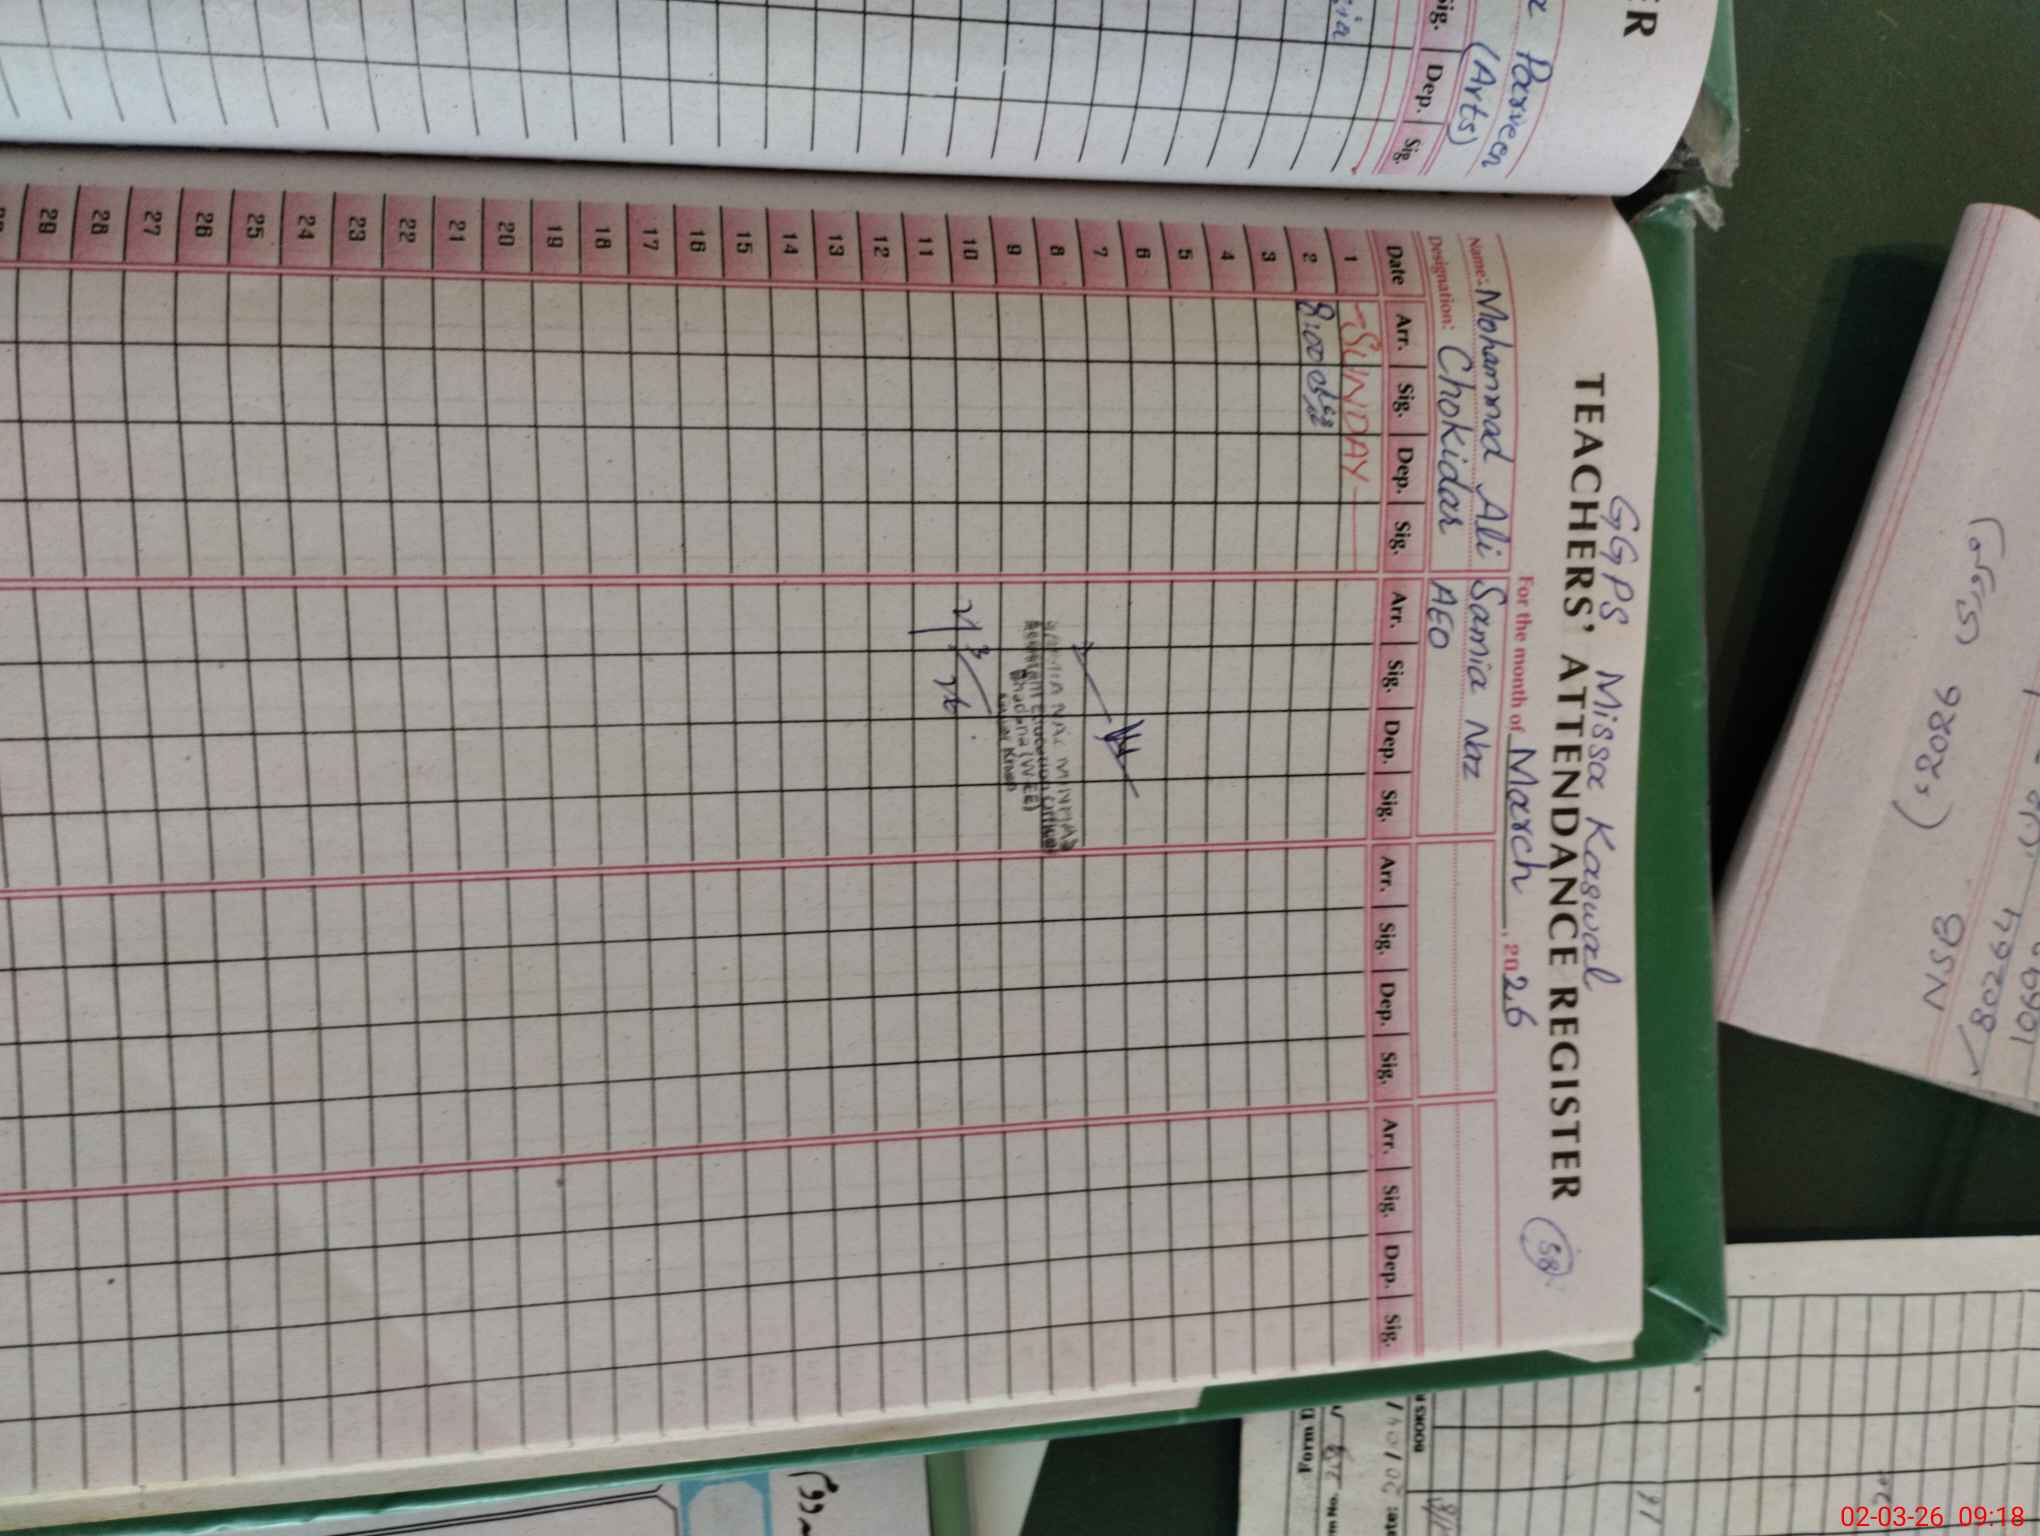 ER
Parveen
(Arts)
Sig. Dep. Sig.
GGPS Missa Kaswal
TEACHERS' ATTENDANCE REGISTER
58
For the month of March, 2026
Name: Mohammad Ali Samia Naz
Designation: Chokidar AEO
Date Arr. Sig. Dep. Sig. Arr. Sig. Dep. Sig. Arr. Sig. Dep. Sig. Arr. Sig. Dep. Sig.
1 SUNDAY
2 8:00
3
4
5
6
7
8
9
10
11
12
13
14
15
16
17
18
19
20
21
22
23
24
25
26
27
28
29
SAMIA NAZ MINHAS
Assistant Education Officer
2/3/26
98086
NSB
802644
BOOKS
Form
02-03-26 09:18